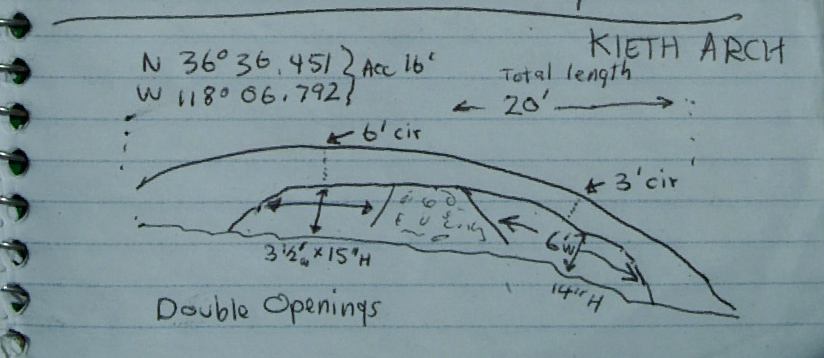 KIETH ARCH
N 36° 36.451 } Acc 16'
W 118° 06.792 }
Total length
20'
6' cir
3' cir
3 1/2' w x 15" H
6' W
14" H
Double Openings